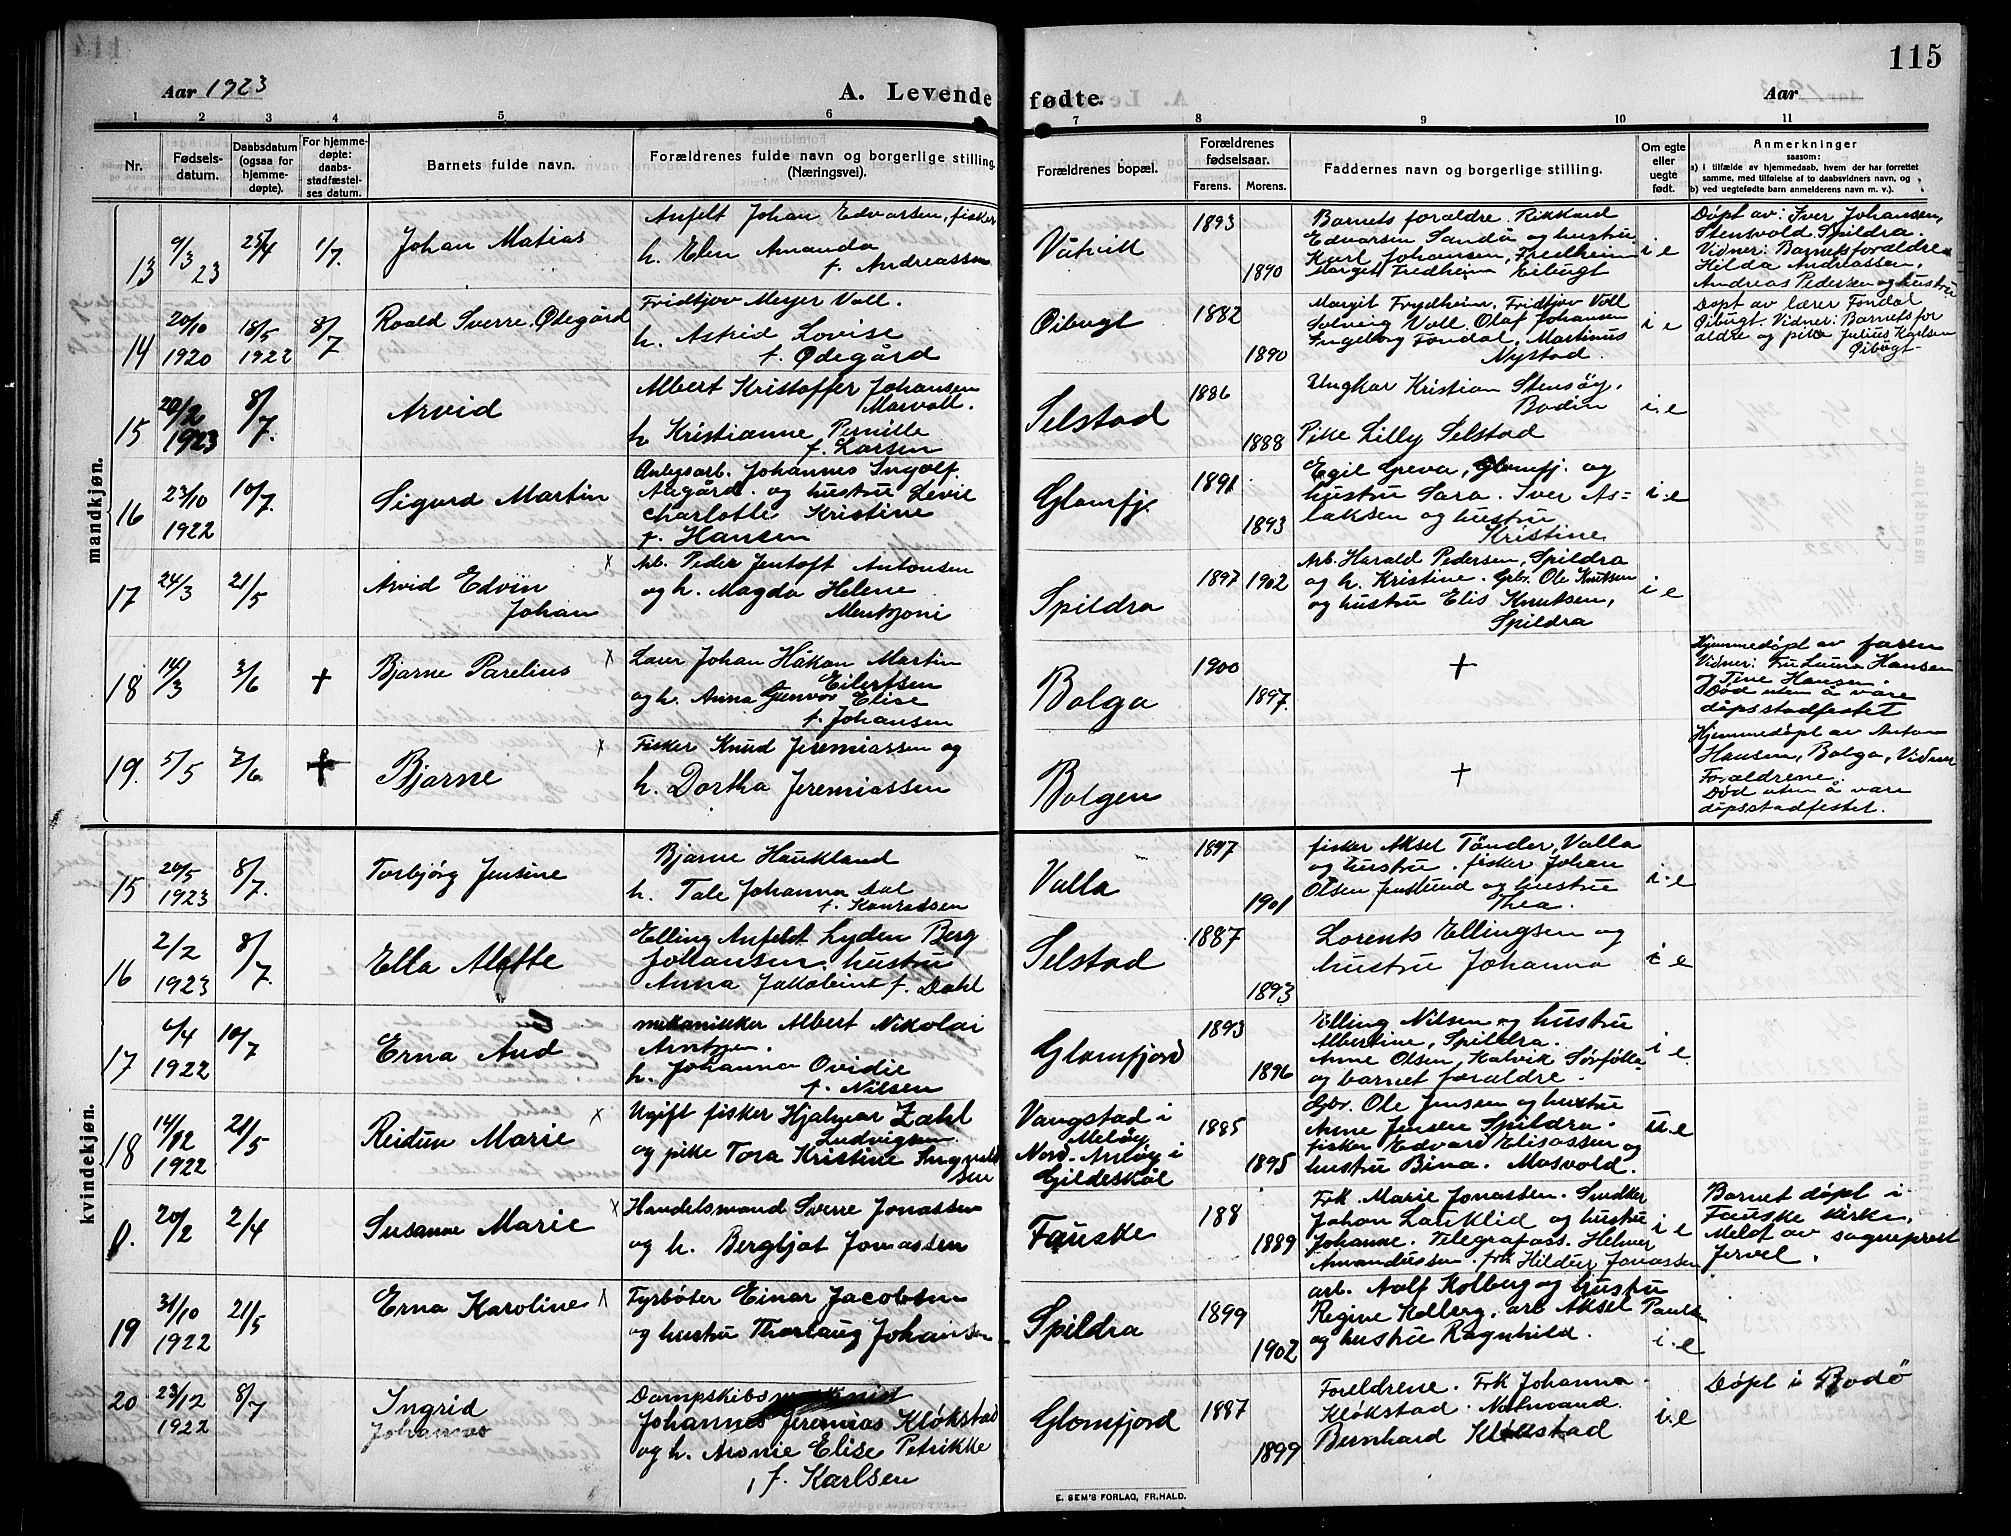 115
Aar 1923
A. Levende fødte.
Aar
1 2 3 4 5 6 7 8 9 10 11
Nr.
Fødsels-
datum.
Daabsdatum
(ogsaa for
hjemme-
døpte).
For hjemme-
døpte:
daabs-
stadfæstel-
ses datum.
Barnets fulde navn.
Forældrenes fulde navn og borgerlige stilling.
(Næringsvei).
Forældrenes bopæl.
Forældrenes
fødselsaar.
Farens. Morens.
Faddernes navn og borgerlige stilling.
Om egte
eller
uegte
født.
Anmerkninger
saasom:
a) i tilfælde av hjemmedaab, hvem der har forrettet
samme, med tilføielse af to daabsvidners navn, og
b) ved uegtefødte barn anmelderens navn m. v.).
mandkjøn.
13
9/3
23
25/4
1/7.
Johan Matias
Anfelt Johan Edvarsen, fisker
h. Elen Amanda
f. Andreassen
Våtvik
1893
1890
Barnets forældre. Rikkard
Edvarsen Sandå og hustru
Karl Johansen, Fredheim
Margit Fredheim Eibugt
i e
Døpt av: Iver Johansen,
Stensvold. Spildra.
Vidner: Barnets forældre
Hilda Andreassen,
Andreas Pedersen og hustru
14
20/10
1920
18/5
1922
8/7
Roald Sverre Ødegård
Fridtjov Meyer Voll.
h. Astrid Lovise
f. Ødegård
Øibugt
1882
1890
Margit Frydheim, Fridtjov Voll
Solveig Voll. Olaf Johansen
Ingeborg Fondal, Martinus
Nystad.
i e
Døpt av lærer Fondal
Øibugt. Vidner: Barnets for
ældre og pike Julius Karlsen
Øibugt
15
20/2
1923
8/7.
Arvid
Albert Kristoffer Johansen
Marvoll.
h Kristianne Pernille
f. Larsen
Selstad
1886
1888
Ungkar Kristian Stensøy.
Bodin
Pike Lilly Selstad
i. e
16
23/10
1922
10/7.
Sigurd Martin
Anlegsarb. Johannes Ingolf
Aagård. og hustru Levie
Charlotte Kristine
f. Hansen
Glomfj.
1891
1893
Egil Greva, Glomfj. og
hustru Sara. Iver As-
laksen og hustru
Kristine
i e
17
24/3
21/5
Arvid Edvin x
Johan
Arb. Peder Jentoft Antonsen
og h. Magda Helene
Mentzoni
Spildra
1897 1902
Arb. Harald Pedersen, Spildra
og h. Kristine. Gbr. Ole Knutsen
og hustru Elis Knutsen,
Spildra
i e
18
14/3
3/6
+
Bjarne Parelius x
Lærer Johan Håkon Martin
Eilertsen
og h. Anna Gunvor Elise
f. Johansen
Bolga
1900
1897.
+
Hjemmedøpt av faren
Vidner: Fru Laura Hansen
og Tine Hansen.
Død uten å være
dåpsstadfestet
19.
5/5
2/6
+
Bjarne x
Fisker Knud Jeremiassen og
h. Dortha Jeremiassen
Bolgen
+
Hjemmedøpt av Anton
Hansen, Bolga, Vidner
Forældrene.
Død uten å være
dåpsstadfestet.
kvindekjøn.
15
20/5
1923
8/7.
Torbjørg Jensine
Bjarne Haukland
h. Tale Johanna
f. Konradsen
Valla
1897
1901
fisker Aksel Tønder, Valla
og hustru. fisker Johan
Olsen Jenslund og hustru
Thea.
i. e
16
2/2
1923
8/7.
Ella Alette
Elling Anfeldt Lyden Berg
Johansen, hustru
Anna Jakobine f. Dahl
Selstad
1887
1893
Lorents Ellingsen og
hustru Johanna
i e
17
4/4
1922
10/7
Erna Aud
mekanikker Albert Nikolai
Arntzen.
h. Johanna Ovidie
f. Nilsen
Glomfjord
1893
1896
Elling Nilsen og hustru
Albertine, Spildra.
Anne Olsen, Kalvik Sørfolla
og barnet forældre.
i e.
18
14/12
1922
21/5
Reidun Marie x
Ugift fisker Hjalmar Zahl
Ludvigsen
og pike Tora Kristine Ingvald
sen
Vangstad i
Meløy
Nord-Arnøy i
Gildeskål
1885
1895
Gbr. Ole Jensen og hustru
Anne Jensen Spildra.
fisker Edvard Eliassen og
hustru Bina. Mosvold.
u. e
20/2
2/4
Susanne Marie x
Handelsmand Sverre Jonassen
og h. Bergljot Jonassen
Fauske
188
1889
Frk. Marie Jonassen. Snidker
Johan Lauklid og hustru
Johanne. Telegrafass. Helmer
Amandussen. frk Hildur Jonassen
i e
Barnet døpt i
Fauske kirke,
Meldt av sogneprest
Jervel.
19
31/10
1922
21/5
Erna Karoline x
Fyrbøter Einar Jacobsen
og hustru Thorlaug Johansen
Spildra
1899
1902
arb. Aalf Kolberg og hustru
Regine Kolberg, arb Aksel Pauls
og hustru Ragnhild.
i. e
20
23/12
1922
8/7
Ingrid
Johanne
Dampskibs
Johannes Jeremias Kløkstad
og h. Aronie Elise Petrikke
f. Karlsen
Glomfjord
1887
1899
Foreldrene. Frk Johanna
Kløkstad.
Bernhard Kløkstad
i. e
Døpt i Bodø
E. SEM'S FORLAG, FR.HALD.